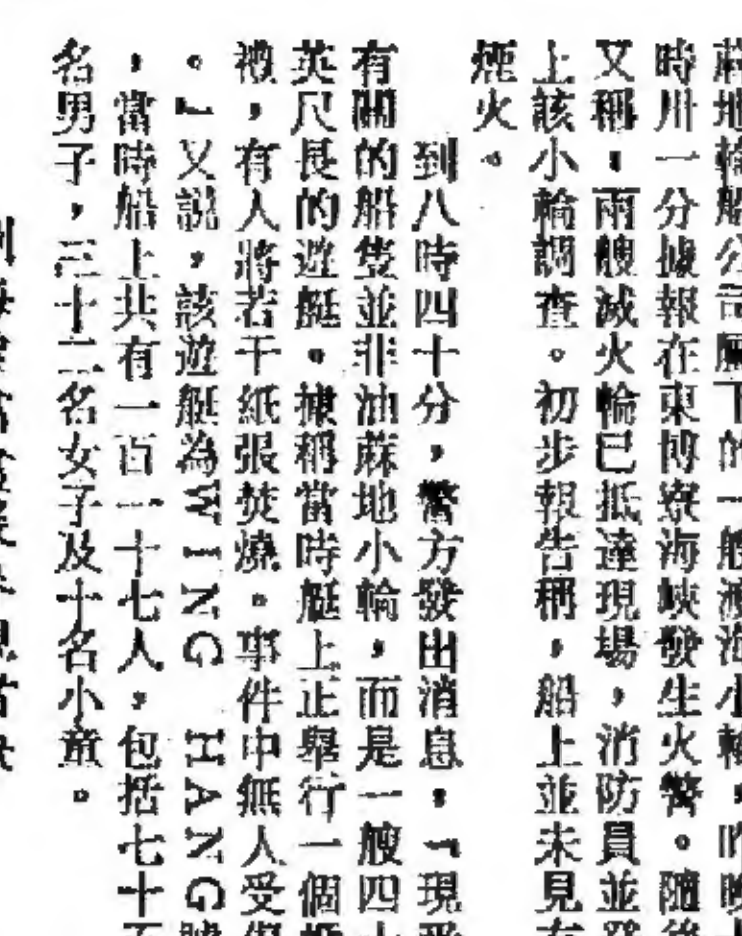 蔴地輪船公司屬下的一艘渡海小輪，昨晚
時卅一分據報在東博寮海峽發生火警。隨後
又稱：兩艘滅火輪已抵達現場，消防員並登
上該小輪調查。初步報告稱，船上並未見有
煙火。
到八時四十分，警方發出消息：「現
有關的船隻並非油蔴地小輪，而是一艘四十
英尺長的遊艇。據稱當時艇上正舉行一個
，有人將若干紙張焚燒。事件中無人受傷
。」又説，該遊艇為WING HANG號
，當時船上共有一百一十七人，包括七十五
名男子，三十二名女子及十名小童。